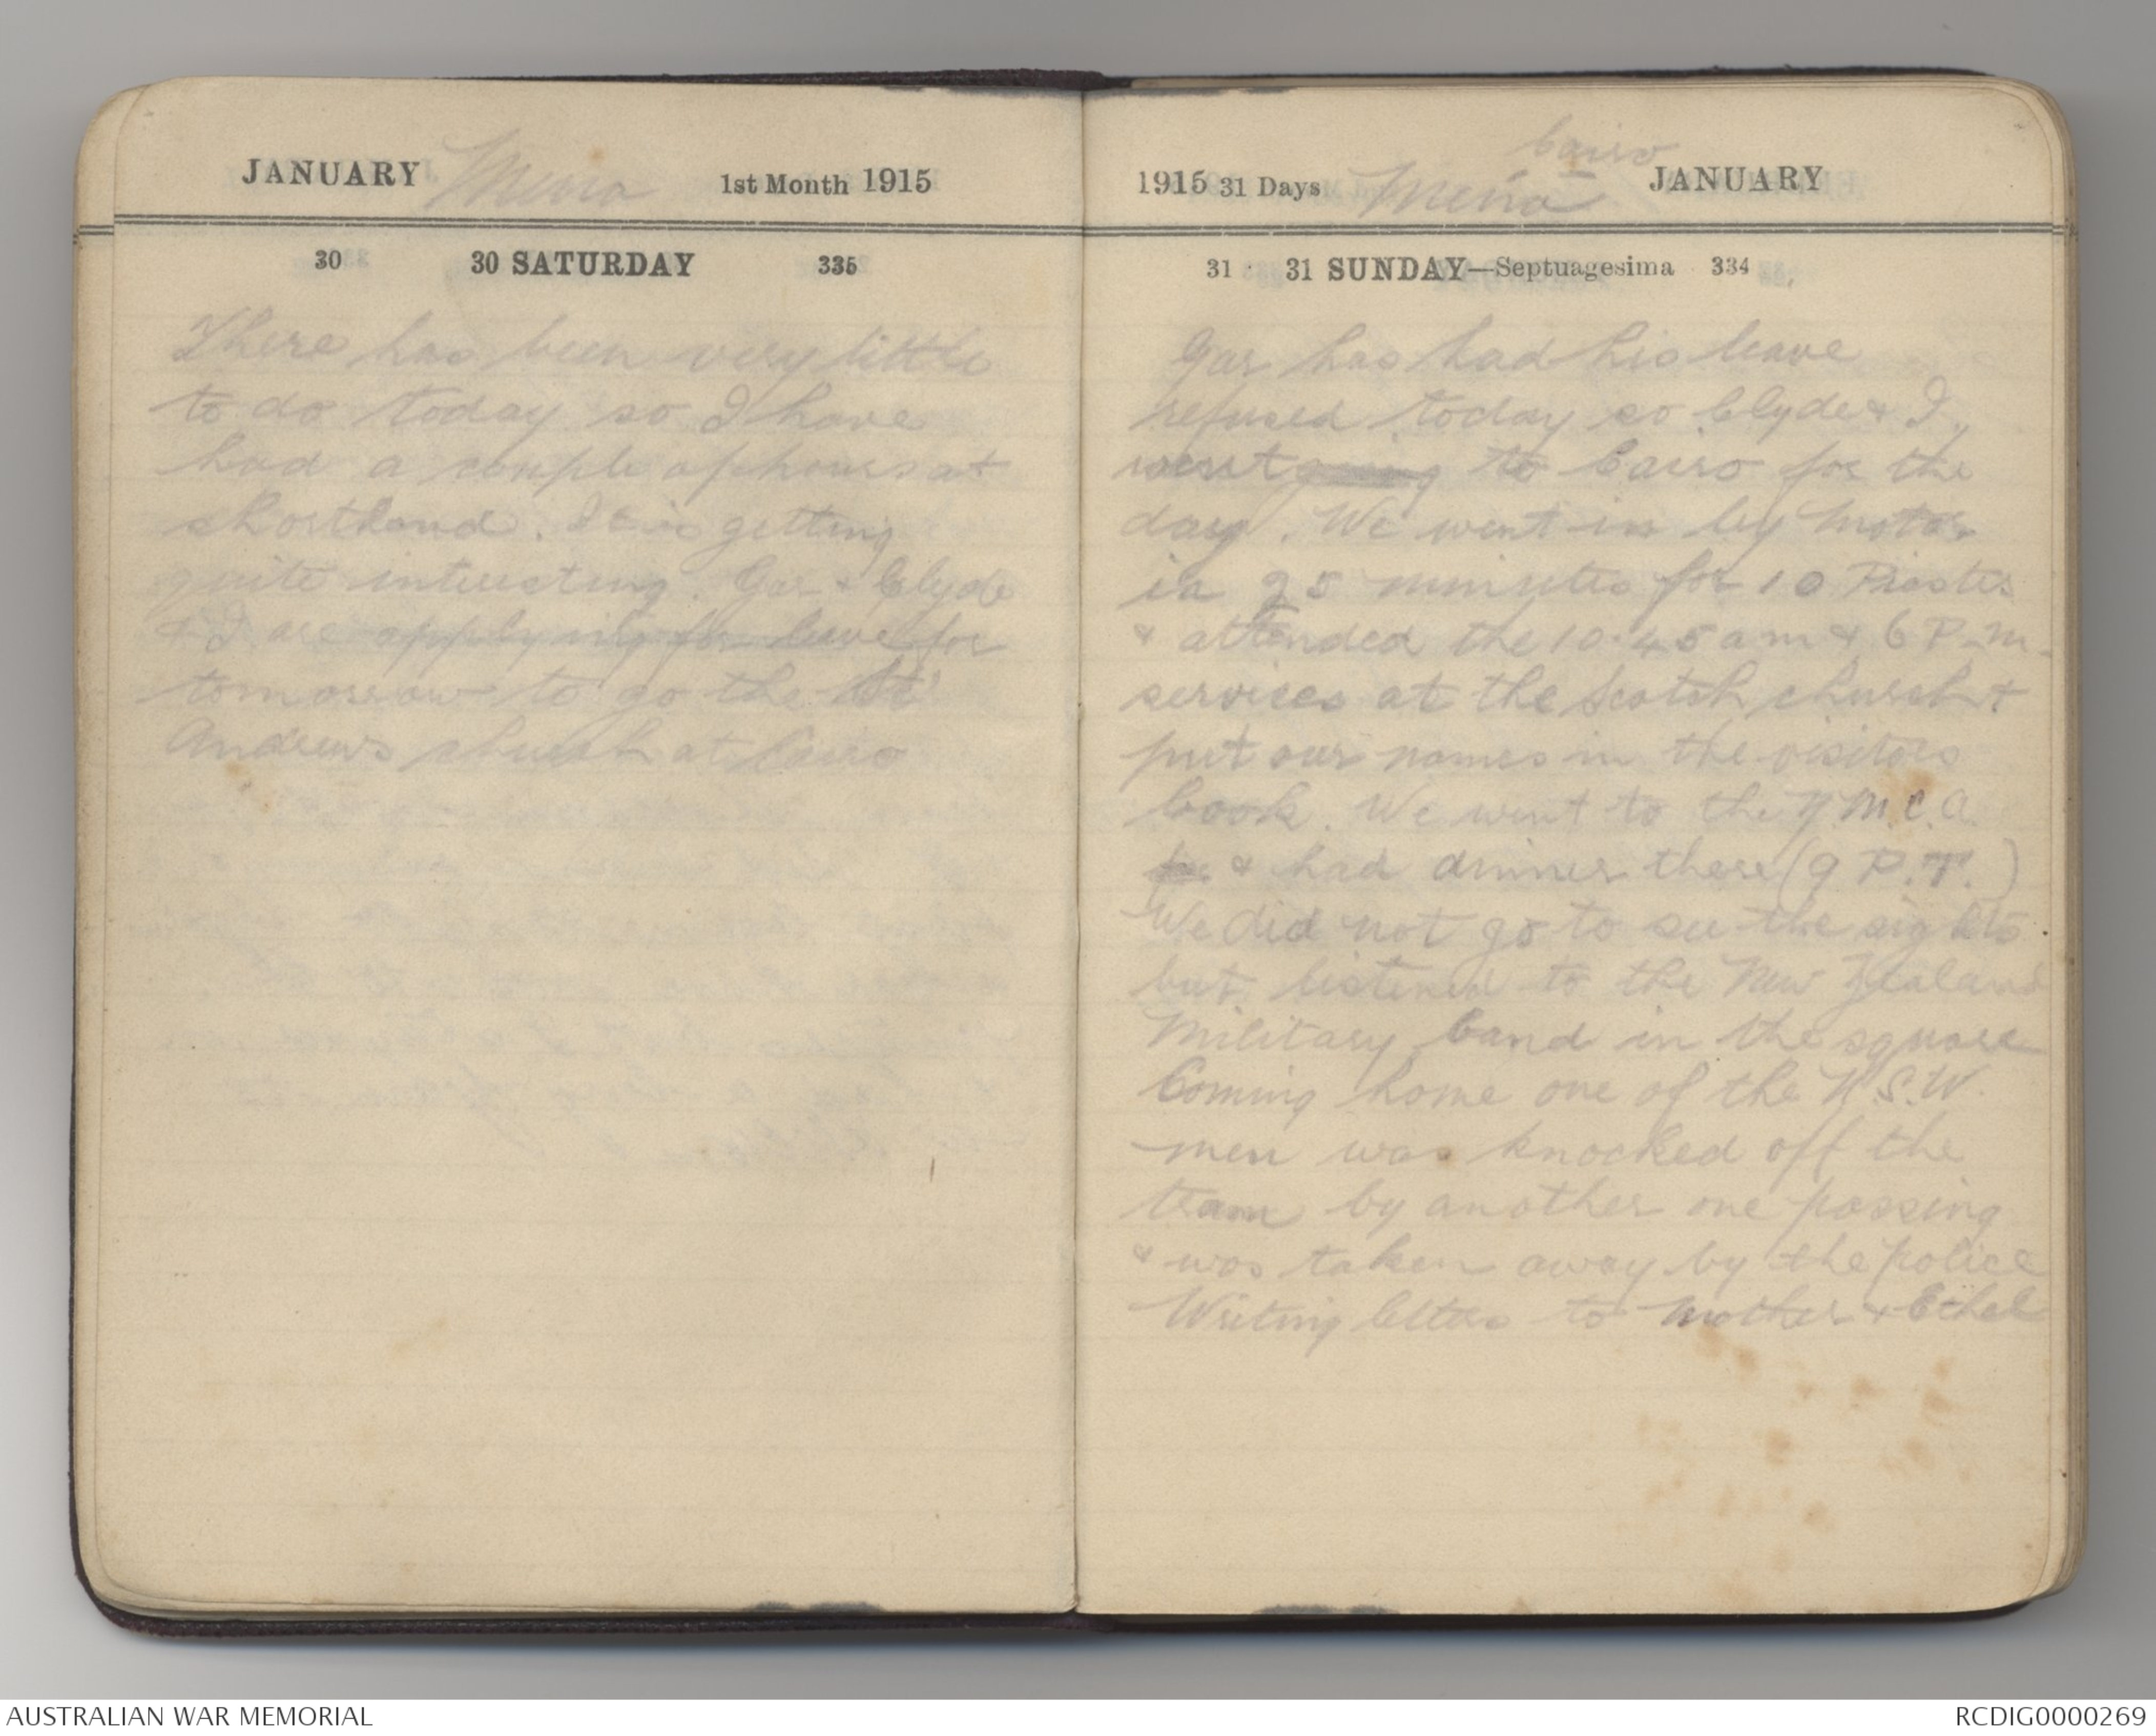 JANUARY Mena 1st Month 1915
30 30 SATURDAY 335
There has been very little
to do today so I have
had a couple of hours at
shorthand. It is getting
quite interesting. Gar & Clyde
& I are applying for leave for
tomorrow to go the St
Andrews church at Cairo
Cairo
1915 31 Days Mena JANUARY
31 31 SUNDAY—Septuagesima 334
Gar has had his leave
refused today so Clyde & I
went to Cairo for the
day. We went in by motor
in 25 minutes for 10 Piastes
& attended the 10.45 am & 6 P.m.
services at the Scotch church &
put our names in the visitors
book. We went to the Y.M.C.A.
& had dinner there (9 P.T.)
We did not go to see the sights
but listened to the New Zealand
Military band in the square
Coming home one of the N.S.W.
men was knocked off the
tram by another one passing
& was taken away by the police
Writing letters to Mother & Ethel
AUSTRALIAN WAR MEMORIAL
RCDIG0000269